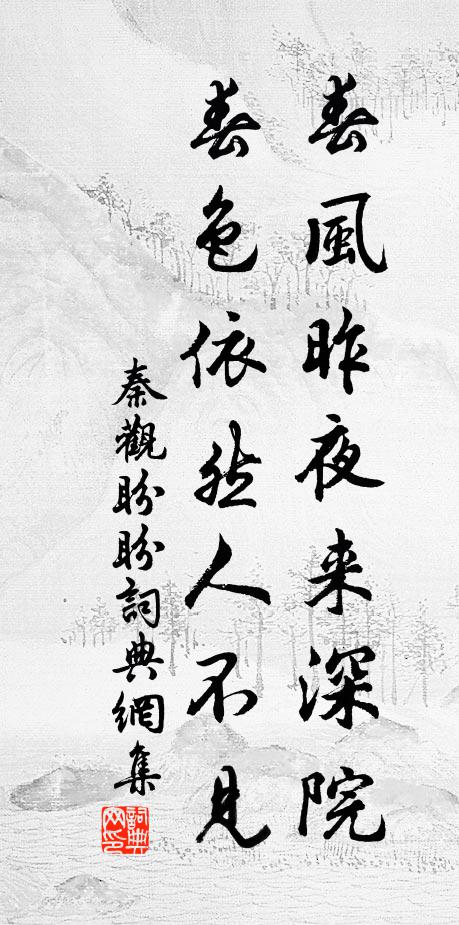 春風昨夜来深院
春色依然人不見
秦觀盼盼詞典網集
詞典网印